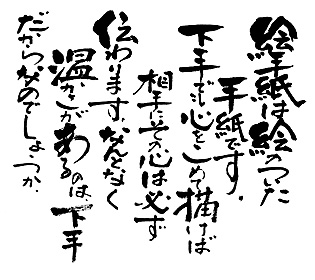 絵手紙は絵のついた
手紙です。
下手でも心をこめて描けば
相手にその心は必ず
伝わります。なんとなく
温かさがあるのは、下手
だからなのでしょうか。